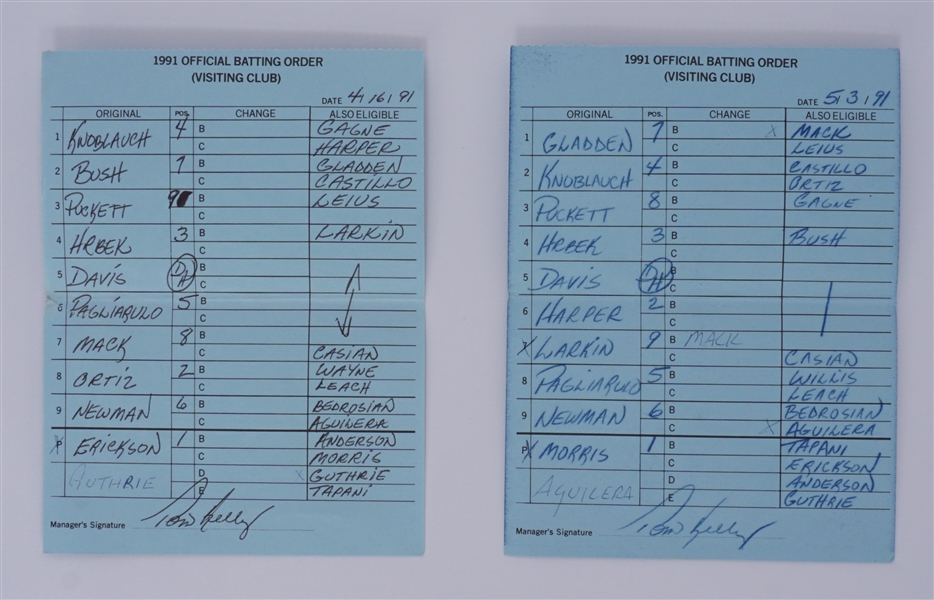 1991 OFFICIAL BATTING ORDER
(VISITING CLUB)
DATE 4/16/91
ORIGINAL POS. CHANGE ALSO ELIGIBLE
1 KNOBLAUCH 4 B GAGNE
C HARPER
2 BUSH 7 B GLADDEN
C CASTILLO
3 PUCKETT 9 B LEIUS
C
4 HRBEK 3 B LARKIN
C
5 DAVIS DH B
C
6 PAGLIARULO 5 B
C
7 MACK 8 B
C CASIAN
8 ORTIZ 2 B WAYNE
C LEACH
9 NEWMAN 6 B BEDROSIAN
C AGUILERA
P ERICKSON 1 B ANDERSON
C MORRIS
GUTHRIE D X GUTHRIE
E TAPANI
Manager's Signature Tom Kelly
1991 OFFICIAL BATTING ORDER
(VISITING CLUB)
DATE 5/3/91
ORIGINAL POS. CHANGE ALSO ELIGIBLE
1 GLADDEN 7 B X MACK
C LEIUS
2 KNOBLAUCH 4 B CASTILLO
C ORTIZ
3 PUCKETT 8 B GAGNE
C
4 HRBEK 3 B BUSH
C
5 DAVIS DH B
C
6 HARPER 2 B
C
7 LARKIN 9 B MACK
C CASIAN
8 PAGLIARULO 5 B WILLIS
C LEACH
9 NEWMAN 6 B BEDROSIAN
C X AGUILERA
P MORRIS 1 B TAPANI
C ERICKSON
AGUILERA D ANDERSON
E GUTHRIE
Manager's Signature Tom Kelly